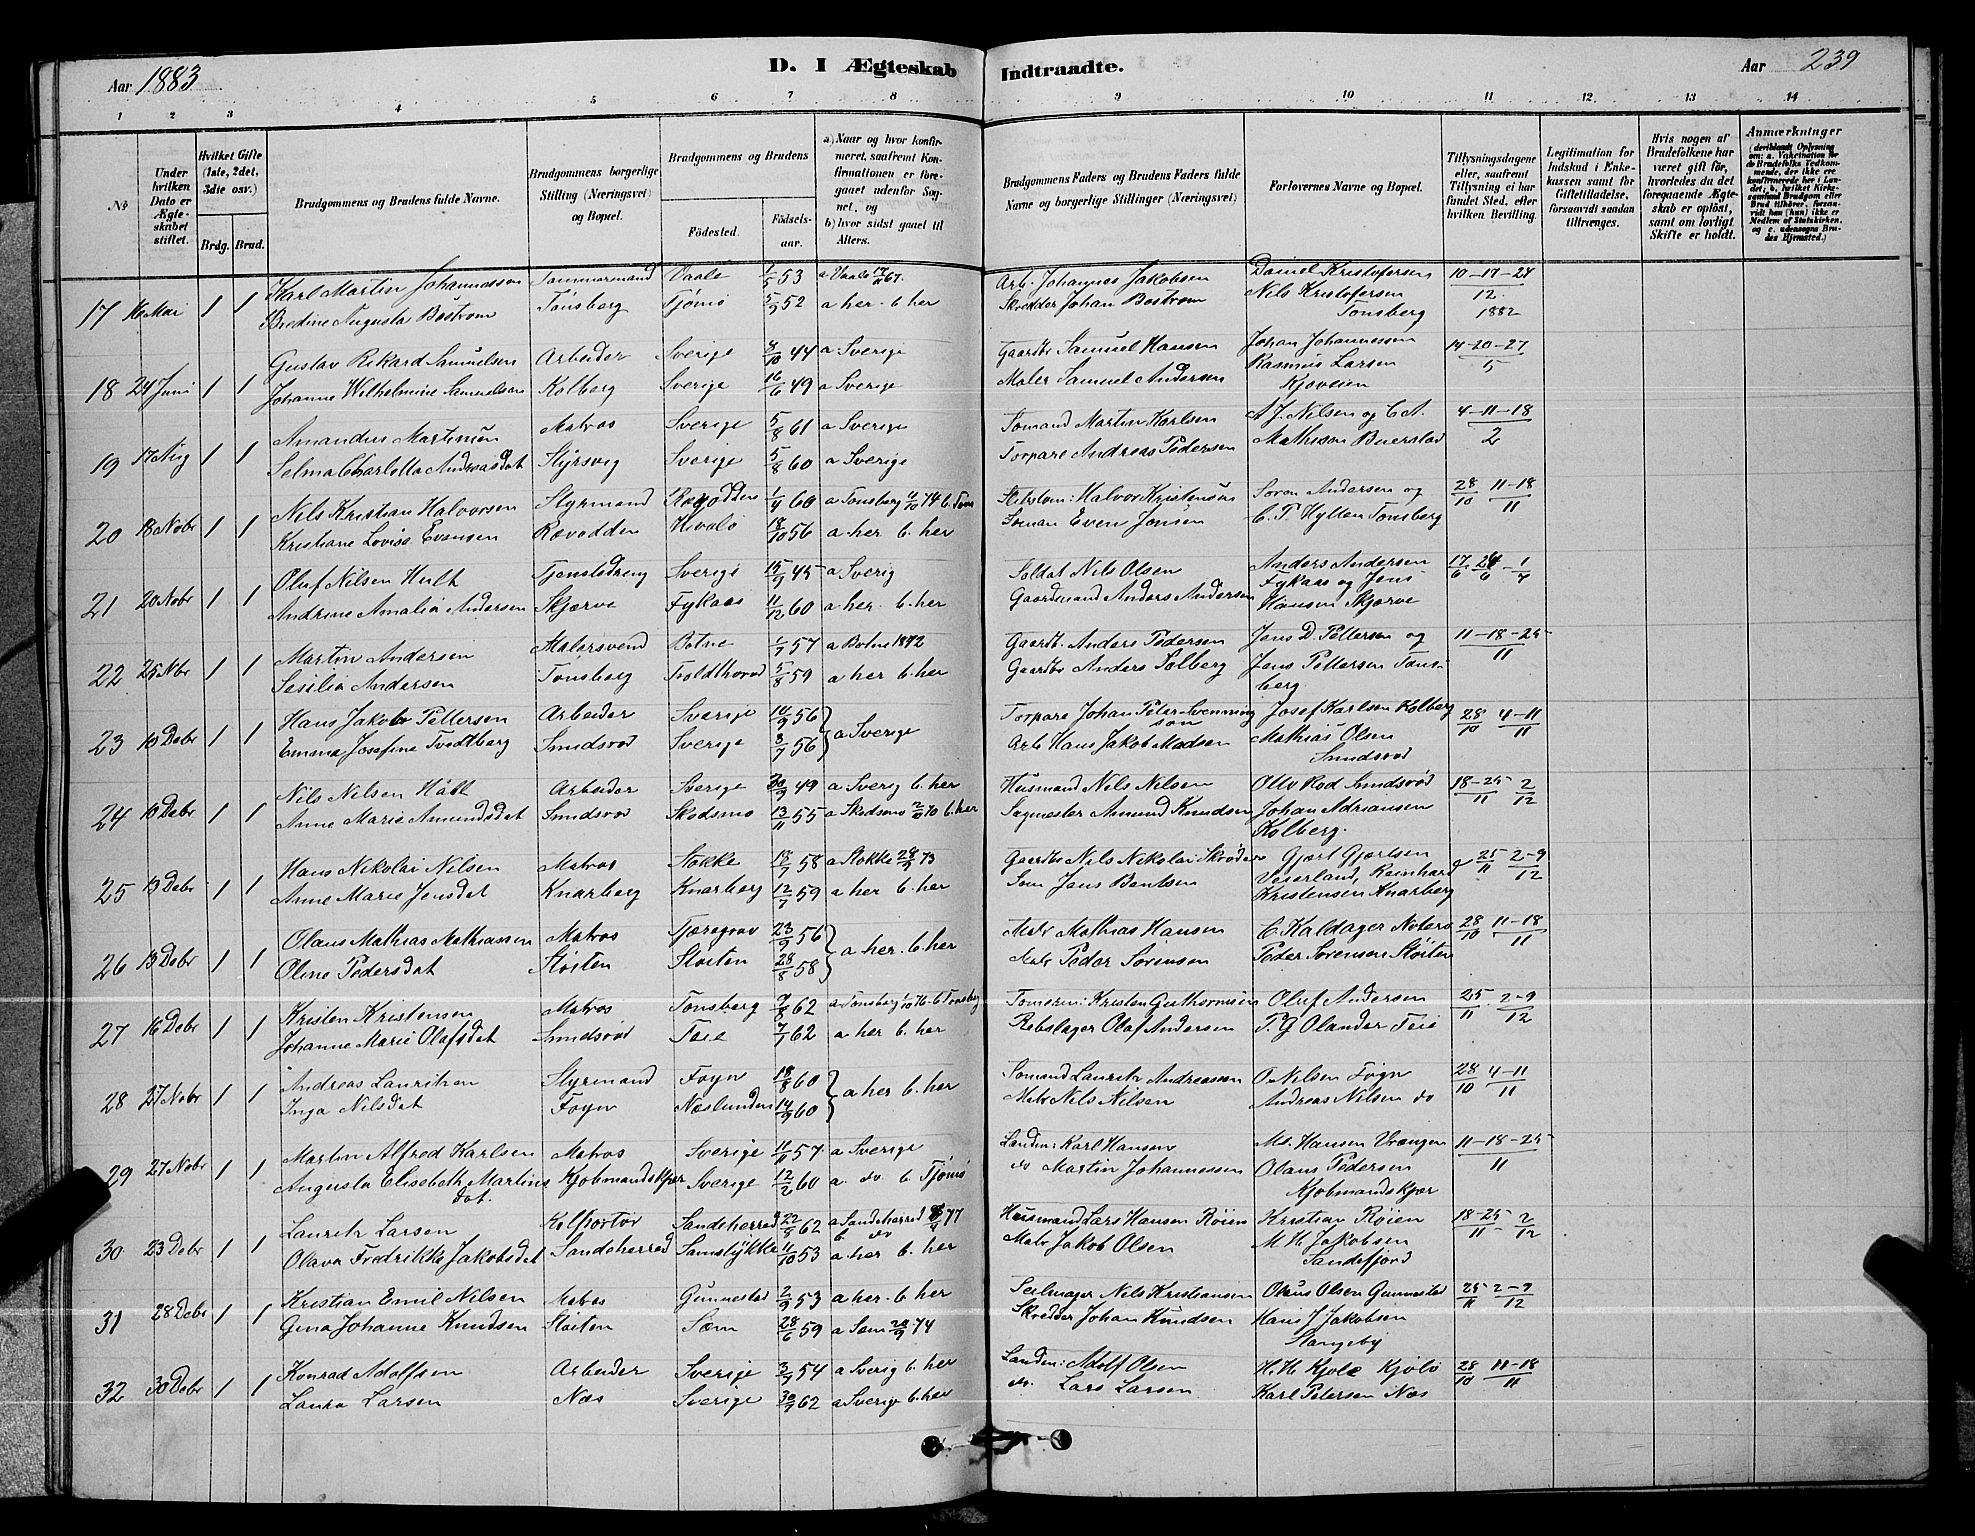 Aar 1883
D. I Ægteskab Indtraadte.
Aar 239
1 2 3 4 5 6 7 8 9 10 11 12 13 14
No
Under hvilken Dato er Ægteskabet stiftet.
Hvilket Gifte (1ste, 2det, 3die osv.)
Brdg. Brud.
Brudgommens og Brudens fulde Navne.
Brudgommens borgerlige Stilling (Næringsvei) og Bopæl.
Brudgommens og Brudens
Fødested.
Fødselsaar.
a) Naar og hvor konfirmeret, saafremt Konfirmationen er foregaaet udenfor Sognet, og
b) hvor sidst gaaet til Alters.
Brudgommens Faders og Brudens Faders fulde Navne og borgerlige Stillinger (Næringsvei)
Forlovernes Navne og Bopæl.
Tillysningsdagene eller, saafremt Tillysning ei har fundet Sted, efter hvilken Bevilling.
Legitimation for Indskud i Enkekassen samt for Giftetilladelse, forsaavidt saadan tiltrænges.
Hvis nogen af Brudefolkene har været gift før, hvorledes da det foregaaende Ægteskab er opløst, samt om lovligt Skifte er holdt.
Anmærkninger
(deriblandt Oplysning om: a. Vakcination for de Brudefolks Vedkommende, der ikke ere konfirmerede her i Landet; b. hvilket Kirkesamfund Brudgom eller Brud tilhører, forsaavidt han (hun) ikke er Medlem af Statskirken, og c. udensogns Brudes Hjemsted.)
17 16 Mai 1 1 Karl Martin Johannessen Tømmermand Vaale 1/5 53 a Vaale 67. Arb. Johannes Jakobsen Daniel Kristofersen 10-17-24
Bredine Augusta Bostrøm Tønsberg Tjømø 5/9 52 a her. b her Skrædder Johan Bostrøm Nils Kristofersen 12
Tønsberg 1882
18 24 Juni 1 1 Gustav Rikard Samuelsen Arbeider Sverige 8/10 44 a Sverige Gaardbr Samuel Hansen Johan Johannessen 14-20-27
Johanne Wilhelmine Samuelsen Kolberg Sverige 16/6 49 a Sverige Maler Samuel Andersen Rasmus Larsen 5
Kjøveien
19 17 Aug 1 1 Amandus Martinsen Matros Sverige 5/8 61 a Sverige Sømand Martin Karlsen A J. Nilsen og C A. 4-11-18
Selma Charlotta Andreasdat Styrsvig Sverige 5/8 60 a Sverige Torpare Andreas Pedersen Mathisen Buerstad 2
20 18 Novbr 1 1 Nils Kristian Halvorsen Styrmand Rævodden 1/4 60 a Tønsberg 11/10 74 b. Tøns Halvor Kristensen Søren Andersen og 28/10 11-18
Kristiane Lovise Evensen Rævodden Hvalø 18/10 56 a her b. her Sømand Even Jensen C. P. Hytten Tønsberg 11
21 20 Novbr 1 1 Oluf Nilsen Hult Tjenstedreng Sverige 15/9 45 a Sverig Soldat Nils Olsen Anders Andersen 17/6 24/6 1/7
Andrine Amalia Andersen Skjærve Fykaas 11/12 60 a her. b. her Gaardmand Anders Andersen Fykaas og Jens
Hansen Skjærve
22 25 Nbr 1 1 Martin Andersen Malersvend Botne 1/7 57 a Botne 1872 Gaardbr. Anders Pedersen Jens D. Pettersen og 11-18-25
Sesilia Andersen Tønsberg Toldthoved 5/8 59 a her b. her Gaardbr Anders Solberg Jens Pettersen Tøns- 11
berg
23 10 Debr 1 1 Hans Jakob Pettersen Arbeider Sverige 10/9 56 a Sverige Torpare Johan Peter Svenning Josef Karlsen Kolberg 28/10 4-11
son
Emma Josefine Tvedtberg Smidsrød Sverige 3/7 56 Arb. Hans Jakob Madsen Mathias Olsen 11
Smidsrød
24 10 Debr 1 1 Nils Nilsen Håtl Arbeider Sverige 30/9 49 a Sverig b. her Husmand Nils Nilsen Otto Rød Smidsrød 18-25 2
Anne Marie Amundsdat Smidsrød Skedsmo 13/11 55 a Skedsmo 70 b. her Sagmester Amund Knudsen Johan Adriansen 11 12
Kolberg.
25 13 Debr 1 1 Hans Nikolai Nilsen Matros Stokke 18/7 58 a Stokke 28/9 73 Gaardbr Nils Nikolai Gjert Gjertsen 25/11 2-9
Anne Marie Jensdat Knarberg Knarberg 12/7 59 a her b. her Søm Jens Bentsen Veierland, Reinhard 12
Kristensen Knarberg
26 13 Debr 1 1 Olaus Mathias Mathiassen Matros Tjæregrav 23/9 56 a her. b. her Matr Mathias Hansen C. Kaldager Nøterø 28/10 11-18
Oline Pedersdat Støiten Støiten 28/8 58 Matr Peder Sørensen Peder Sørensen Støiten 11
27 16 Debr 1 1 Kristen Kristensen Matros Tønsberg 9/8 62 a Tønsberg 1/10 76 b Tønsberg Tømerm: Kristen Guthormsen Oluf Andersen 25/11 2-9
Johanne Marie Olafsdat Smidsrød Teie 7/7 62 a her b. her Rebslager Olaf Andersen P. G Olander Teie 12
28 27 Novbr 1 1 Andreas Lauritzen Styrmand Føyn 18/8 60 a her b. her Sømand Lauritz Andreassen O. Nilsen Føyn 28/10 4-11
Inga Nilsdat Føyn Næslunden 14/9 60 Matr Nils Nilsen Andreas Nilsen do 11
29 27 Novbr 1 1 Martin Alfred Karlsen Matros Sverige 11/11 57 a Sverige Landm: Karl Hansen Md. Hansen Vrængen 11-18-25
Augusta Elisabeth Martins Kjøbmandskjær Sverige 12/2 60 a. do b Tjømø do Martin Johannessen Olaus Pedersen 11
dat. Kjøbmandskjær
30 23 Debr 1 1 Lauritz Larsen Kolportør Sandeherred 22/8 62 a Sandeherred 77 Husmand Lars Hansen Røien Kristian Røien 18-25 2
b do
Olava Fredrikke Jakobsdat Sandeherred Semstykke 11/10 53 a her b. her Matr Jakob Olsen M. H. Jakobsen 11 12
Sandefjord
31 28 Debr 1 1 Kristian Emil Nilsen Matros Gunnestad 2/9 53 a her. b. her Seilmager Nils Kristiansen Olaus Olsen Gunnestad 25/11 2-9
Gina Johanne Knudsen Støiten Sem 28/6 59 a Sem 20/9 74 Skredder Johan Knudsen Hans J Jakobsen 12
Stangeby
32 30 Debr 1 1 Konrad Adolfsen Arbeider Sverige 3/7 54 a Sverig b. her Landm: Adolf Olsen H. H. Kjøle Kjøle 28/10 11-18
Laura Larsen Næs Sverige 30/9 62 a Sverige b. her do. Lars Larsen Karl Petersen Næs 11